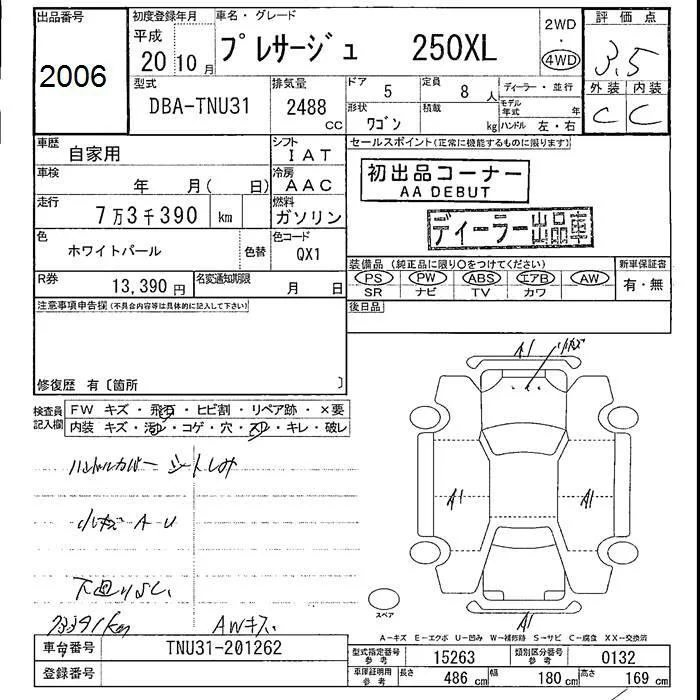 出品番号 初度登録年月 車名・グレード 2WD 評価点
2006 平成 20 10月 プレサージュ 250XL ・ 4WD 3.5
型式 排気量 ドア 定員 ディーラー・並行 外装 内装
DBA-TNU31 2488 CC 5 8人 モデル年式 年 C C
形状 積載 ハンドル 左・右
ワゴン kg
車歴 シフト セールスポイント(正常に機能するものに限ります)
自家用 IAT
車検 冷房 初出品コーナー
年 月( 日) AAC AA DEBUT
走行 燃料 ディーラー出品車
7万3千390 km ガソリン
色 色替 色コード
ホワイトパール QX1
装備品(純正品に限り○をつけてください) 新車保証書
R券 13,390円 名変通知期限 月 日 PS PW ABS エアB AW 有・無
SR ナビ TV カワ
注意事項申告欄(不具合内容等は具体的に記入して下さい) 後日品
修復歴 有〔箇所 〕
A1 小キズ
検査員記入欄 FW キズ・飛石・ヒビ割・リペア跡・×要
内装 キズ・汚れ・コゲ・穴・スレ・キレ・破レ
ハンドルカバー シートしみ
A1 A1
小キズ A-U
下廻りサビ
73391km AWキズ
スペア A1
A-キズ E-エクボ U-凹み W-補修跡 S-サビ C-腐食 XX-交換済
車台番号 TNU31-201262 型式指定番号 参考 15263 類別区分番号 参考 0132
登録番号 車庫証明用 参考 長さ 486 cm 幅 180 cm 高さ 169 cm